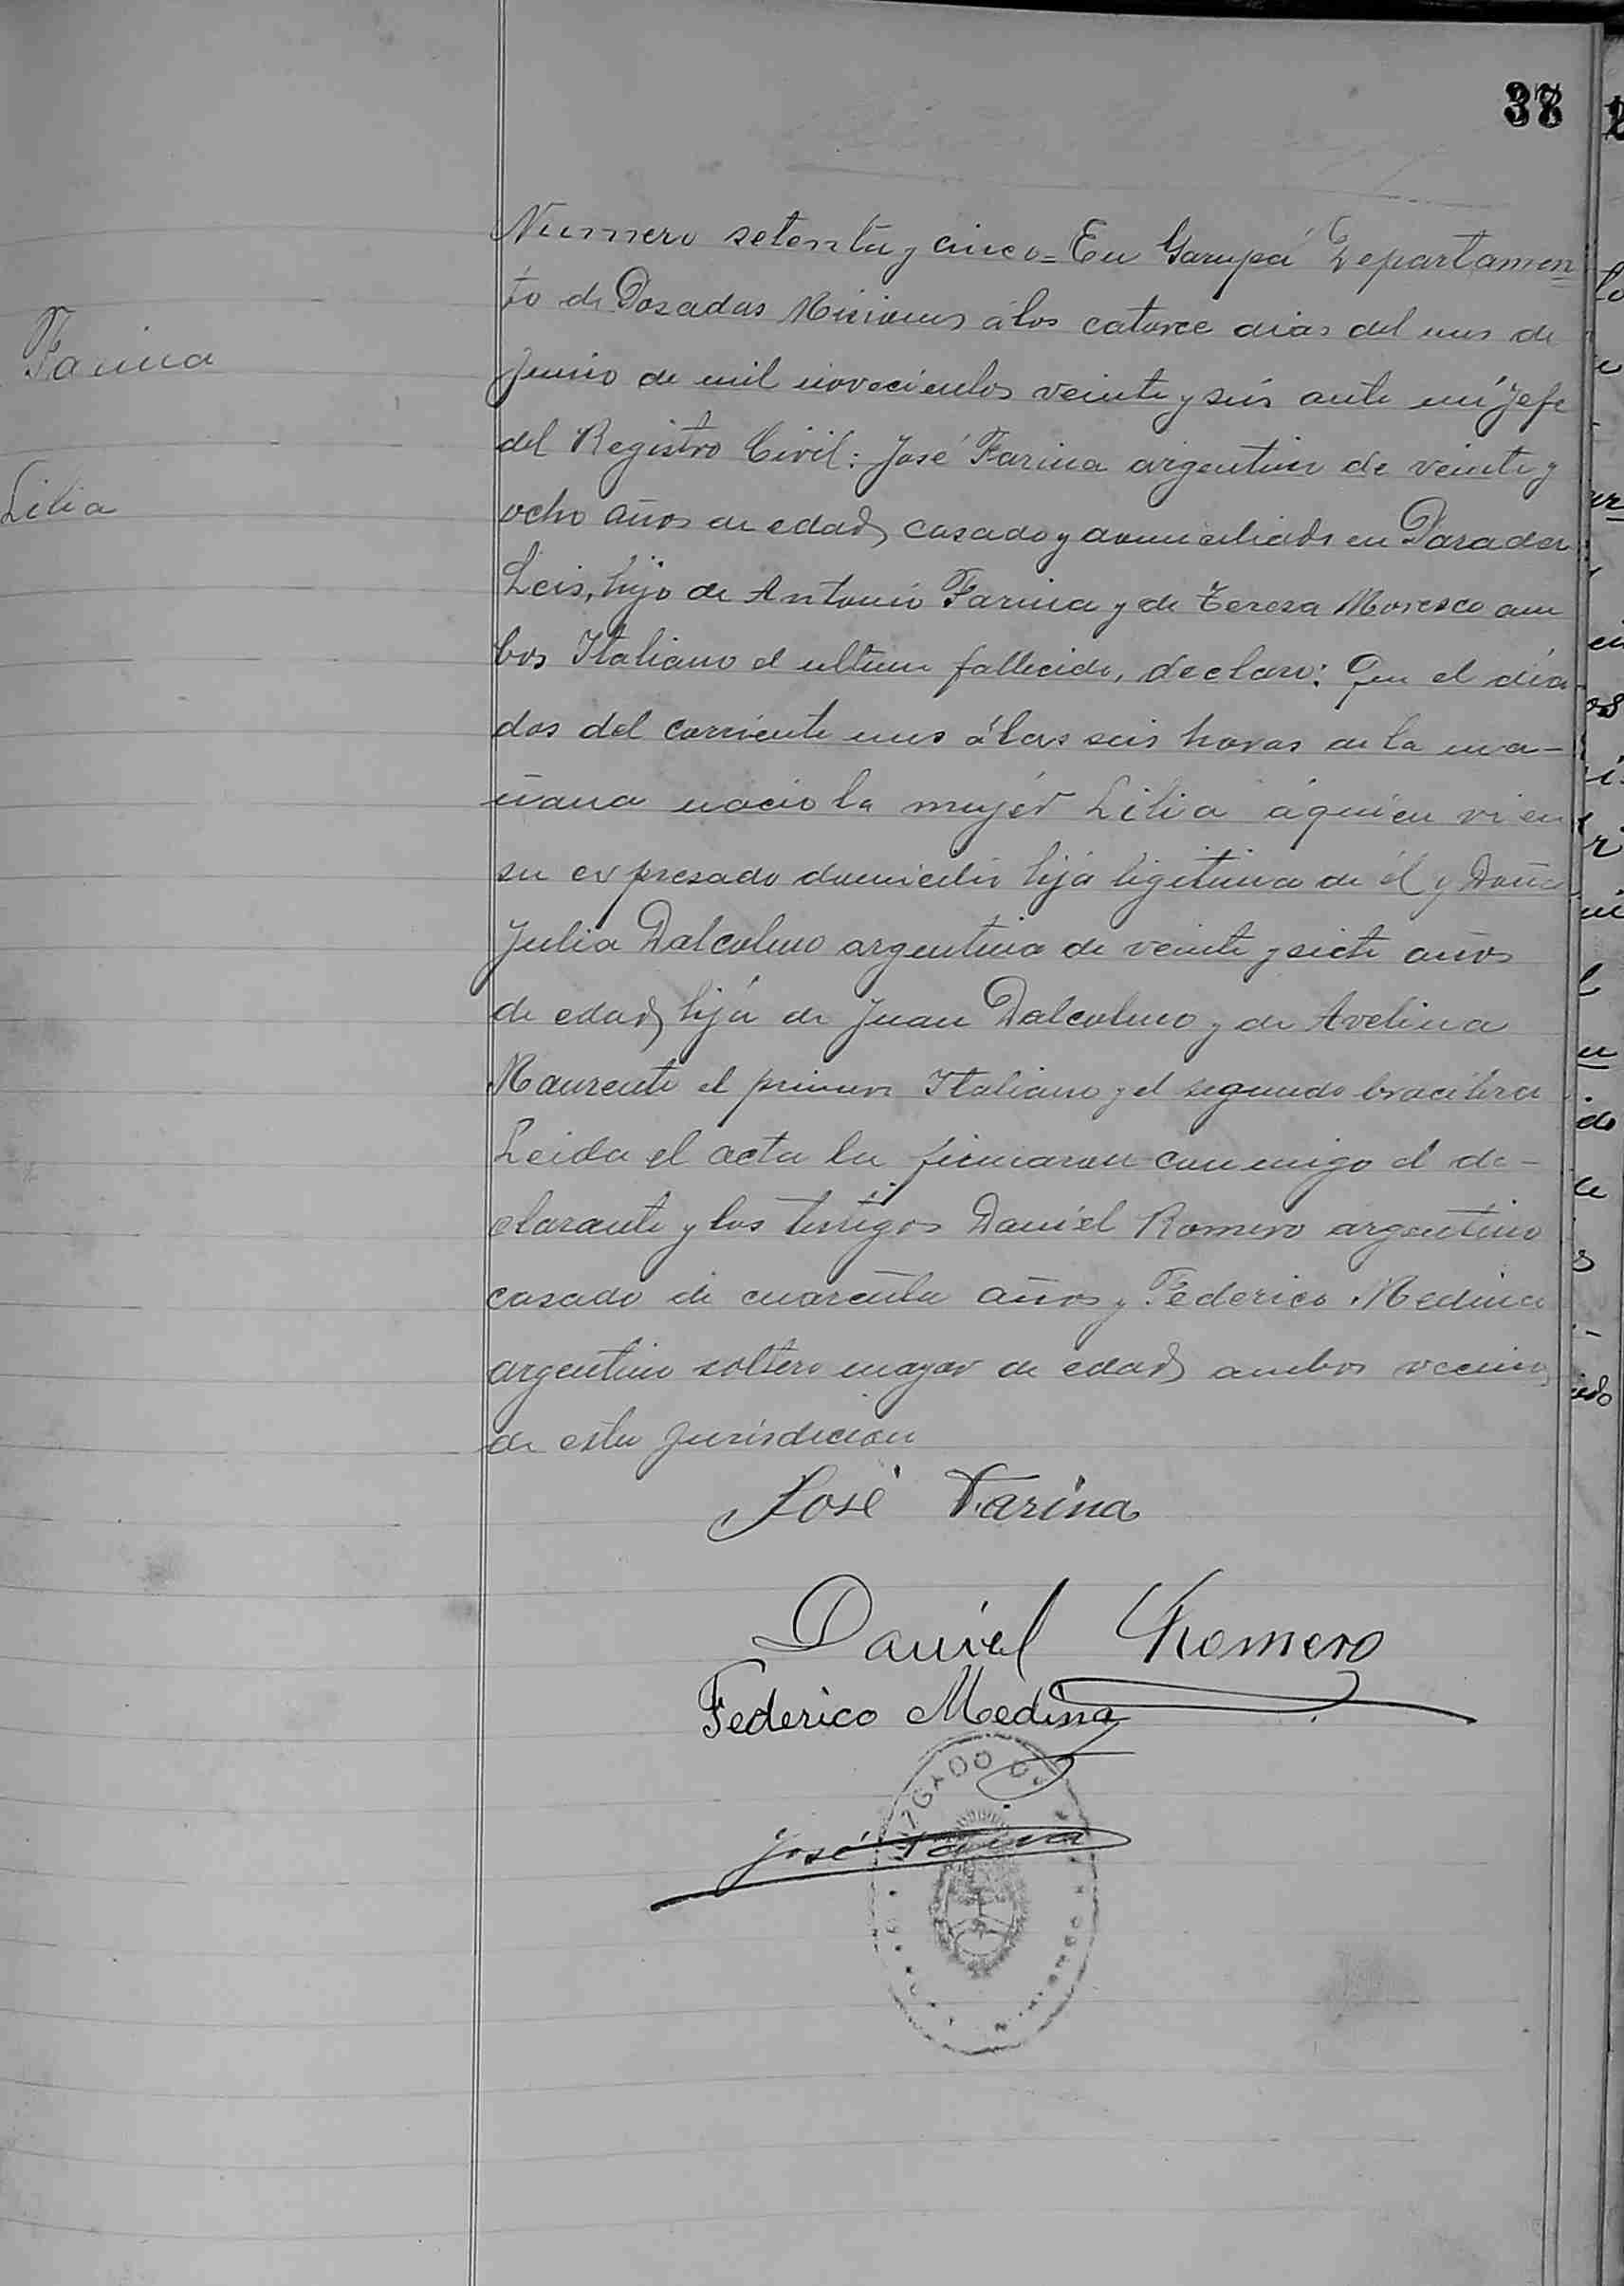 Farina
Lilia
Numero setenta y cinco = En Garupá Departamen
to de Posadas Misiones á los catorce dias del mes de
Junio de mil novecientos veinte y seis ante mi Jefe
del Registro Civil: José Farina argentino de veinte y
ocho años de edad casado y domiciliado en Parador
Leis, hijo de Antonio Farina y de Teresa Moresco am
bos Italiano el ultimo fallecido, declaro: Que el dia
dos del corriente mes á las seis horas de la ma-
ñana nacio la mujer Lilia á quien vi en
su expresado domicilio hija ligitima de él y Doña
Julia Dalcolmo argentina de veinte y siete años
de edad hija de Juan Dalcolmo y de Avelina
el primero Italiano y el segundo bracilera
Leida el acta la firmaron conmigo el de-
clarante y los testigos Daniel Romero argentino
casado de cuarenta años y Federico Medina
argentino soltero mayor de edad ambos vecinos
de esta Jurisdicion
José Farina
Daniel Romero
Federico Medina
José